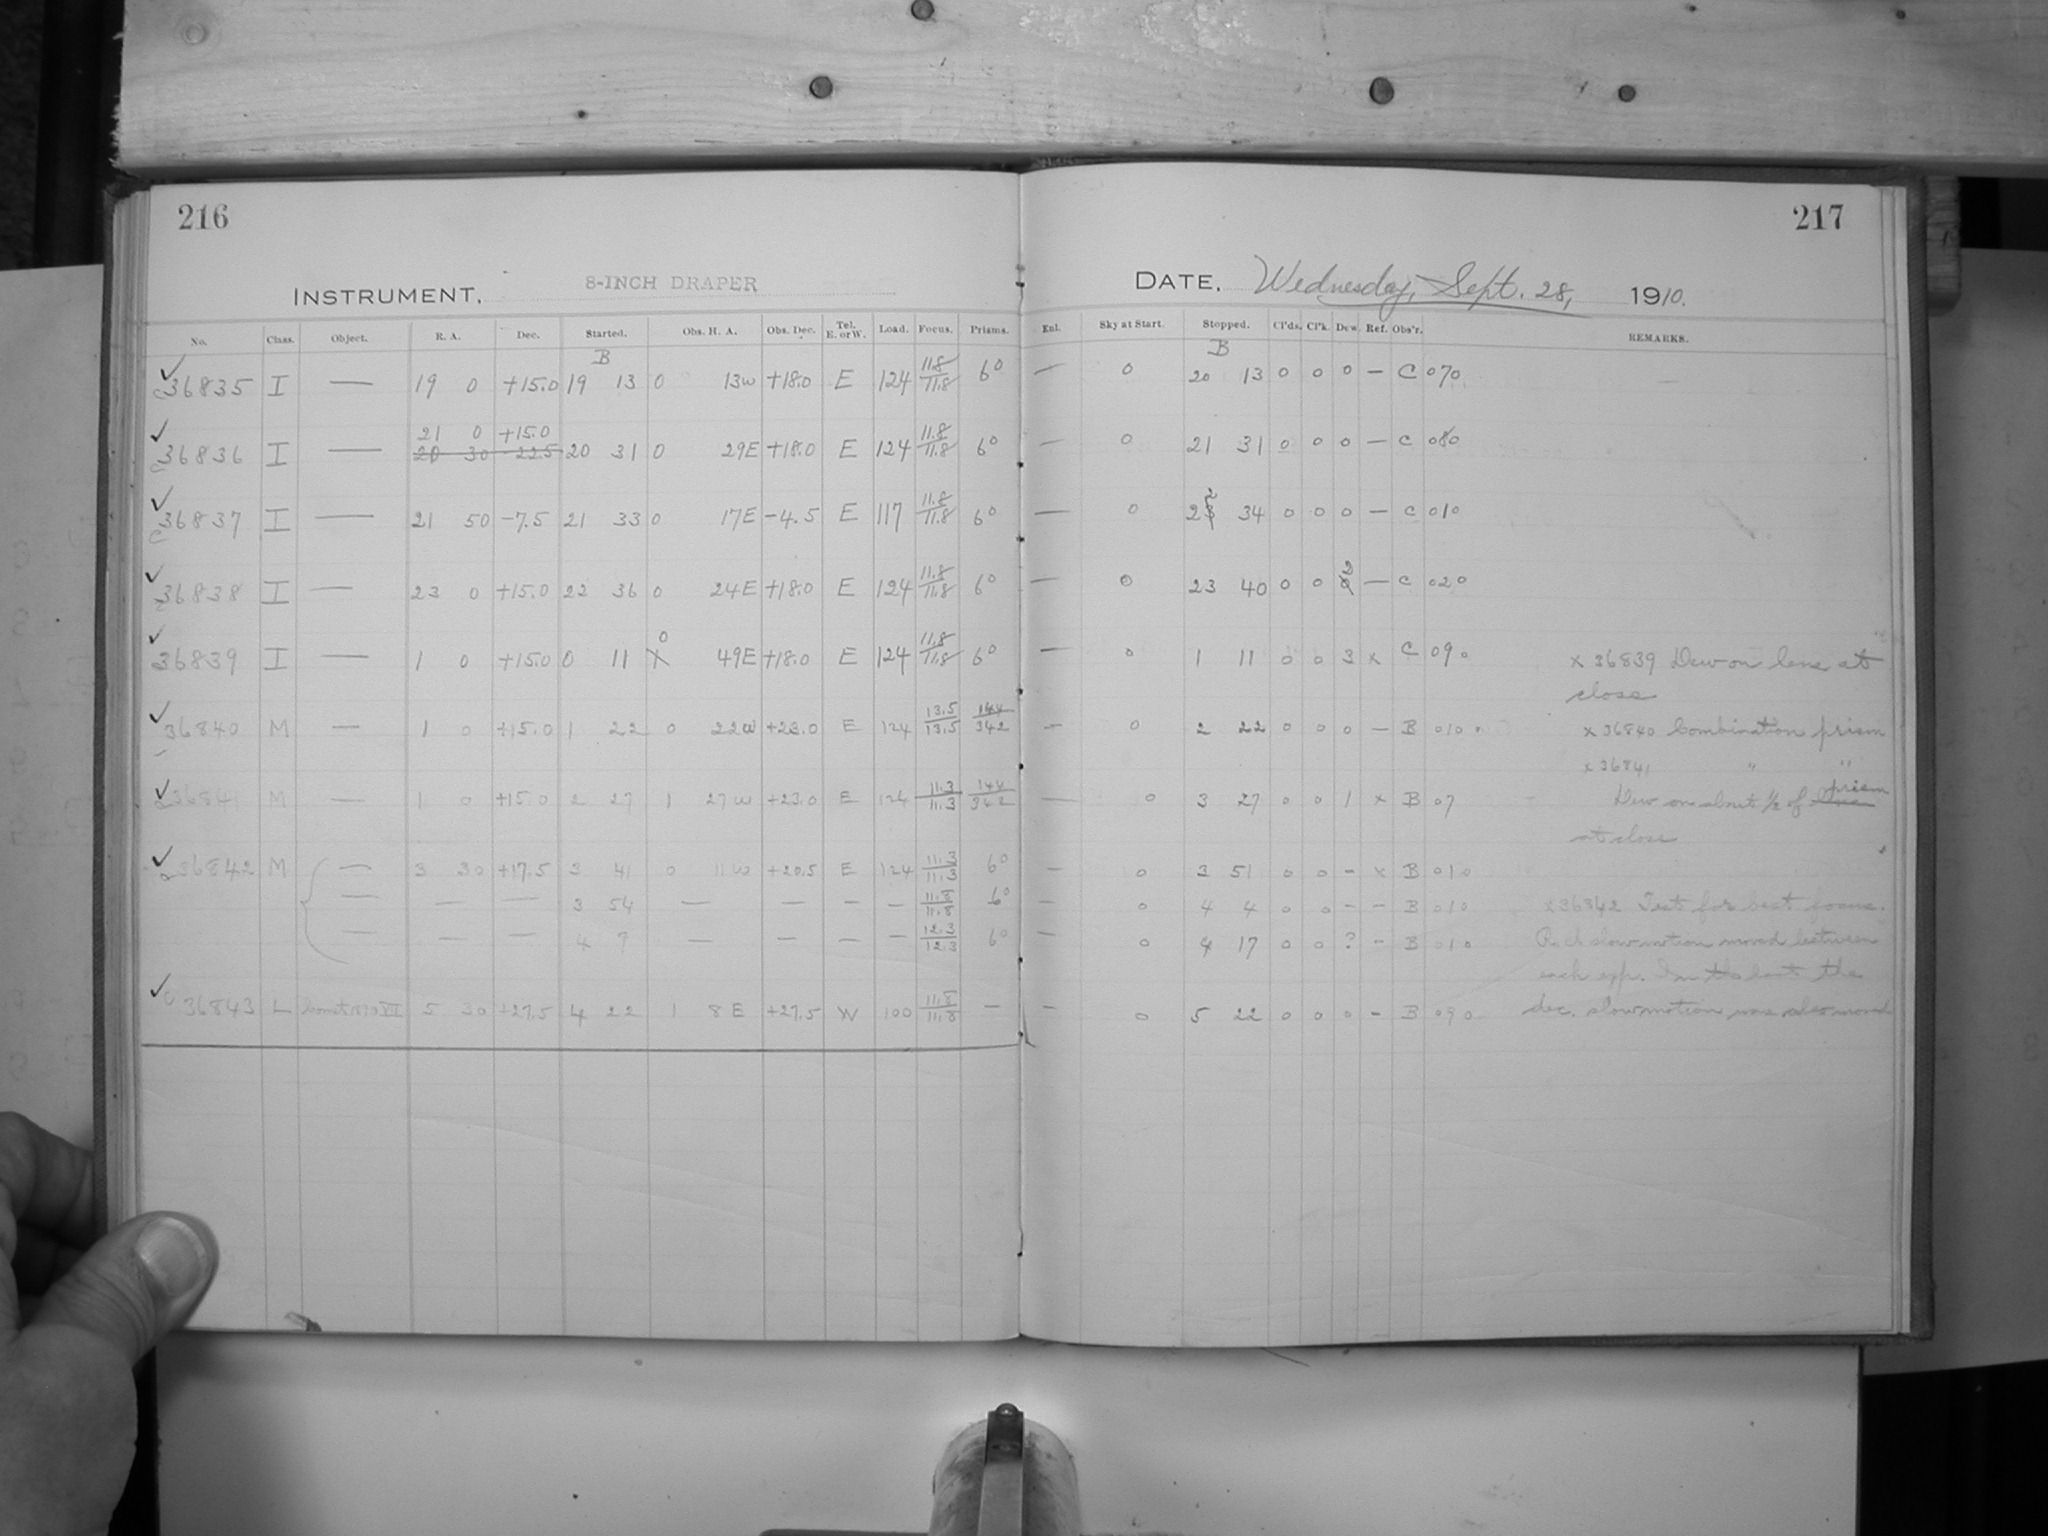 216
INSTRUMENT. 8-INCH DRAPER
No. Class. Object. R. A. Dec. Started. Obs. H. A. Obs. Dec. Tel. E. or W. Load. Focus. Prisms.
B
36835 I — 19 0 +15.0 19 13 0 13w +18.0 E 124 11.8/11.8 6°
21 0 +15.0
36836 I — 20 30 -22.5 20 31 0 29E +18.0 E 124 11.8/11.8 6°
36837 I — 21 50 -7.5 21 33 0 17E -4.5 E 117 11.8/11.8 6°
36838 I — 23 0 +15.0 22 36 0 24E +18.0 E 124 11.8/11.8 6°
36839 I — 1 0 +15.0 0 11 0 49E +18.0 E 124 11.8/11.8 6°
36840 M — 1 0 +15.0 1 22 0 22w +23.0 E 124 13.5/13.5 144/342
36841 M — 1 0 +15.0 2 27 1 27w +23.0 E 124 11.3/11.3 144/342
36842 M — 3 30 +17.5 3 41 0 11w +20.5 E 124 11.3/11.3 6°
— — — 3 54 — — — — 11.8/11.8 6°
— — — 4 7 — — — — 12.3/12.3 6°
36843 L Comet 5 30 +27.5 4 22 1 8E +27.5 W 100 11.8/11.8 —
217
DATE. Wednesday, Sept. 28, 1910.
Enl. Sky at Start. Stopped. Cl'ds. Cl'k. Dew. Ref. Obs'r. REMARKS.
B
— 0 20 13 0 0 0 — C 070
— 0 21 31 0 0 0 — C 080
— 0 22 34 0 0 0 — C 010
— 0 23 40 0 0 2 — C 020
— 0 1 11 0 0 3 x C 090 x 36839 Dew on lens at
close
— 0 2 22 0 0 0 — B 010 x 36840 Combination prism
x 36841 " "
— 0 3 27 0 0 1 x B 07 Dew on about ½ of prism
at close
— 0 3 51 0 0 — x B 010
— 0 4 4 0 0 — — B 010 x 36842 Test for best focus.
— 0 4 17 0 0 ? — B 010 R.A. slow motion moved between
each exp. In the last the
— 0 5 22 0 0 0 — B 090 dec. slow motion was also moved